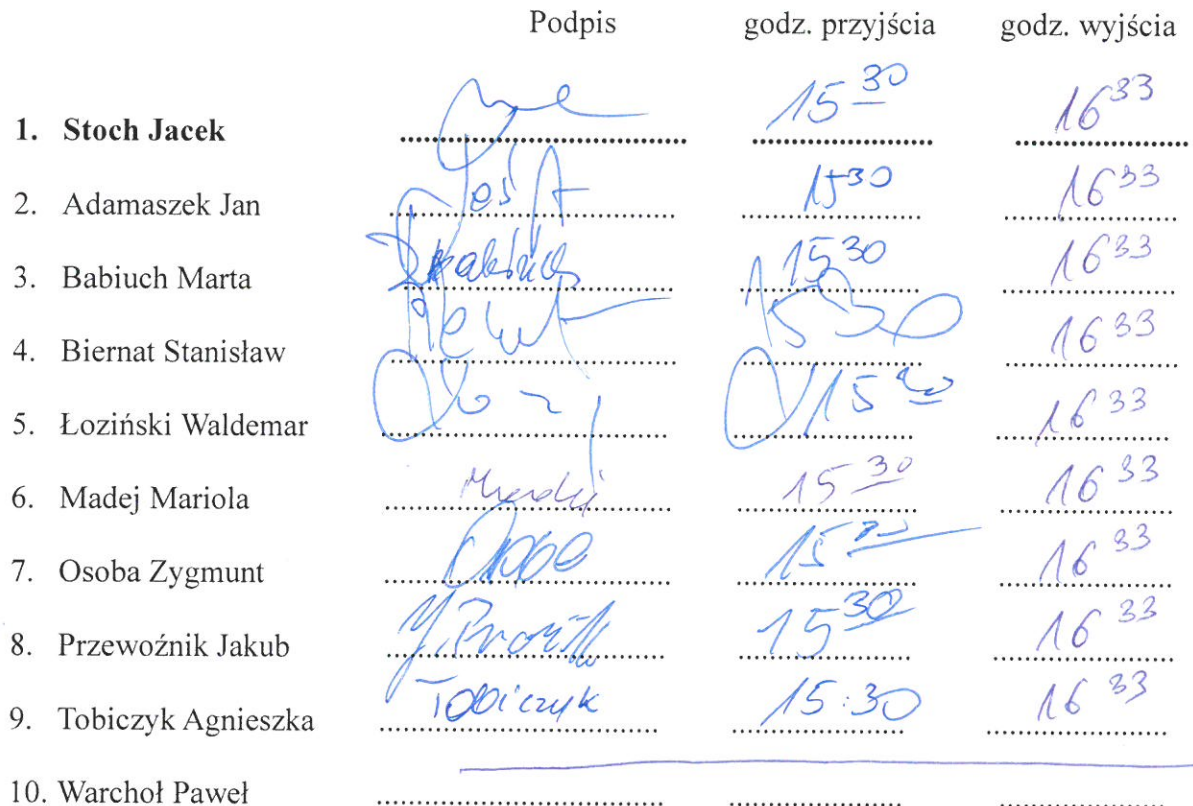 Podpis godz. przyjścia godz. wyjścia
1. Stoch Jacek 15 30 16 33
2. Adamaszek Jan 15 30 16 33
3. Babiuch Marta 15 30 16 33
4. Biernat Stanisław 15 30 16 33
5. Łoziński Waldemar 15 16 33
6. Madej Mariola 15 30 16 33
7. Osoba Zygmunt 15 16 33
8. Przewoźnik Jakub 15 30 16 33
9. Tobiczyk Agnieszka Tobiczyk 15:30 16 33
10. Warchoł Paweł